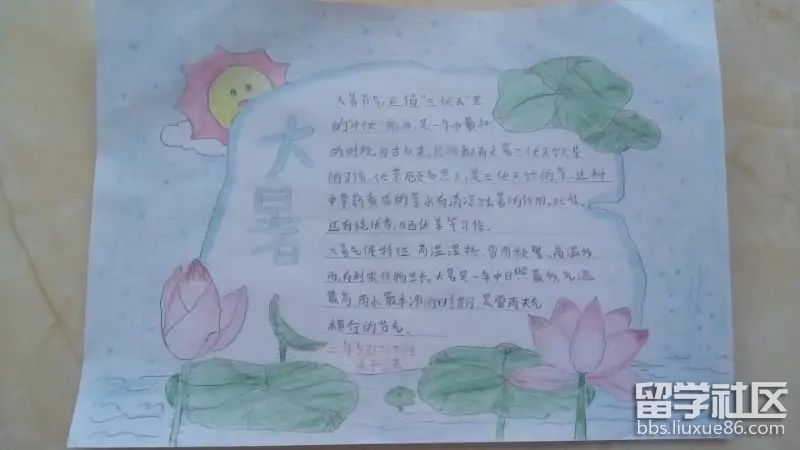 大暑
大暑节气正值"三伏天"里
的"中伏"前后,是一年中最热
的时段,自古以来,民间都有大暑三伏天饮茶
的习俗,伏茶顾名思义,是三伏天饮的茶,这种
中草药煮成的茶水有清凉祛暑的作用。此外,
还有烧伏香,晒伏姜等习俗。
大暑气候特征:高温湿热,雷雨频繁,高温
雨,有利农作物生长。大暑是一年中日照最多,气温
最高,雨水最丰沛的时期,是雷雨天气
横行的节气。
二年级
留学社区
bbs.liuxue86.com